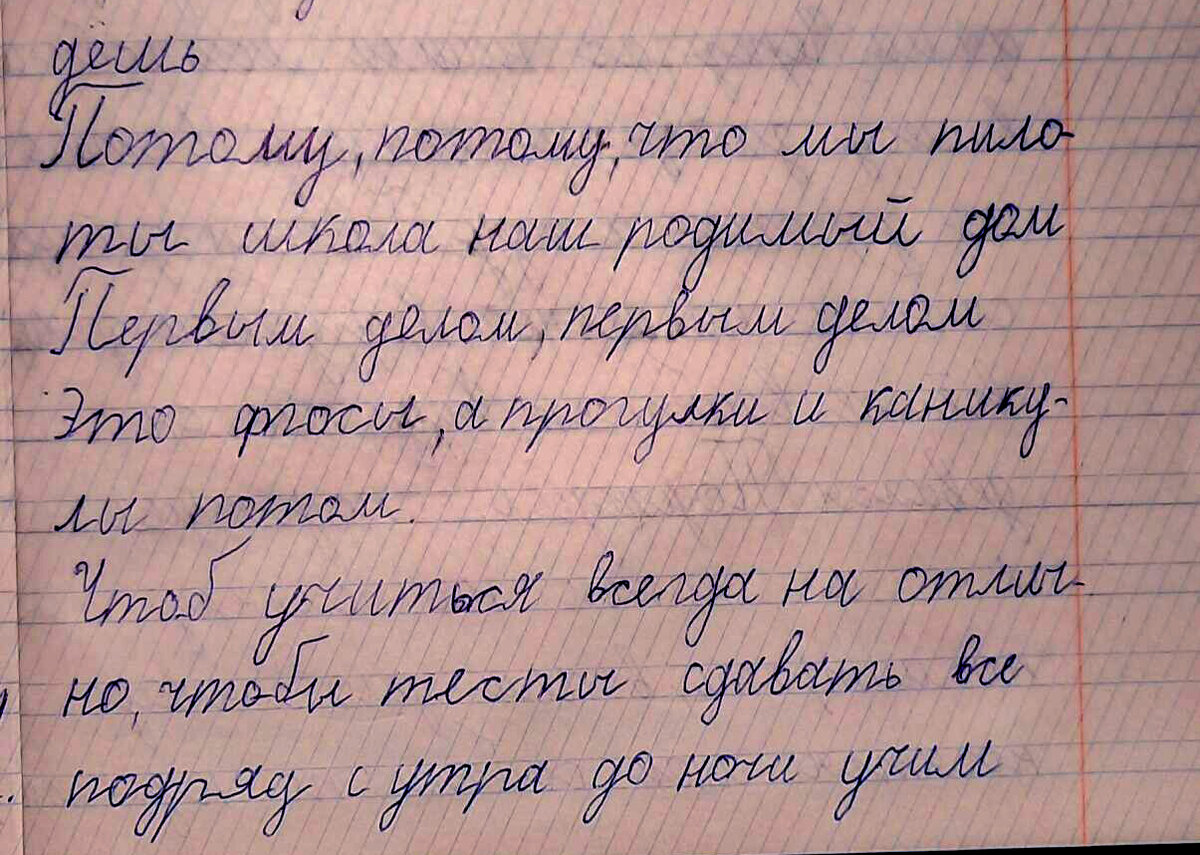 дешь
Потому, потому, что мы пило-
ты школа наш родимый дом
Первым делом, первым делом
Это фгосы, а прогулки и канику-
лы потом.
Чтоб учиться всегда на отлич-
но, чтобы тесты сдавать все
подряд с утра до ночи учим